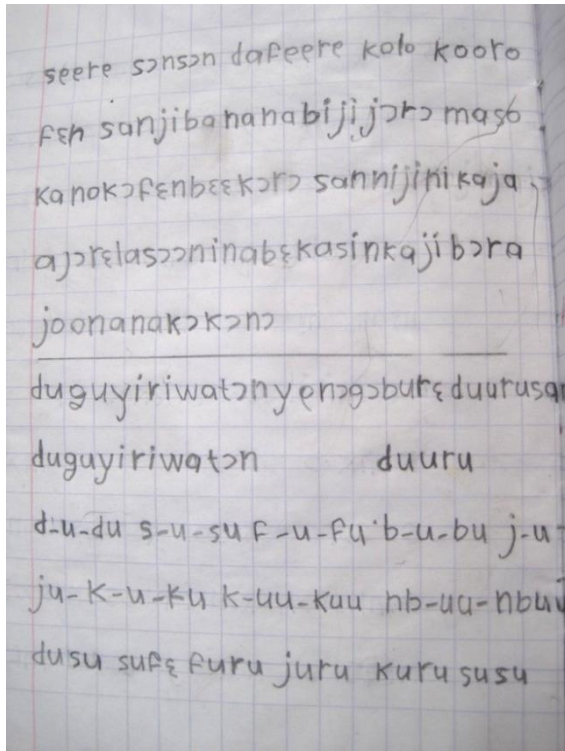 seere sɔnsɔn dafeere kolo kooro
fɛn sanjibananabijijɔrɔ maso
kanokɔfɛnbɛɛkɔrɔ sannijinikaja
ajɔrɛlasɔɔninabɛkasinkajibɔra
joonanakɔkɔnɔ
duguyiriwatɔnyenɔgɔburɛduurusan
duguyiriwatɔn duuru
d-u-du s-u-su f-u-fu b-u-bu j-u-
ju-k-u-ku k-uu-kuu nb-uu-nbuu
dusu sufɛ furu juru kuru susu